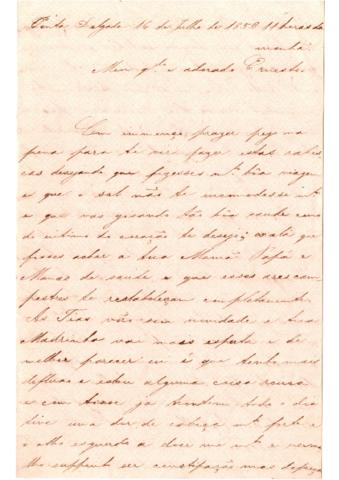 Ponta Delgada 16 de Julho de 1858 11 horas da
manhã
Meu q.do e adorado Ernesto
Com immenso prazer pego na
pena para te vir fazer estas rabis
cas desejando que fizesses m.to bôa viagem
e que o sol não te incomodasse m.to
e que vas gosando tão bôa saude como
do intimo do coração te desejo; estimo que
fosses achar a tua Mamã Papá e
Manos de saude e que esses ares cam
pestres te restabeleçam completamente
As Tias vão sem novidade a tua
Madrinha vai mais esperta e de
melhor parecer eu é que tenho mais
defluxo e estou alguma coisa rouca
e com tosse já hontem todo o dia
tive uma dor de cabeça m.to forte e
o olho esquerdo a doer me m.to e verme
lho supponho ser constipação mas